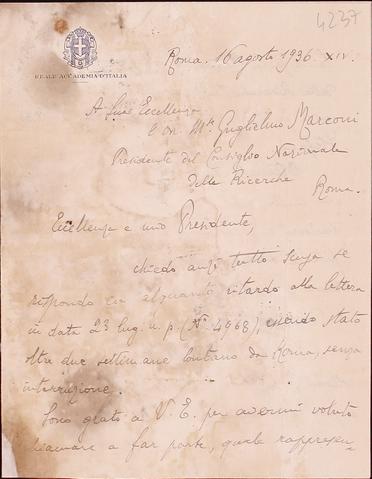 4237
REALE ACCADEMIA D'ITALIA
Roma. 16 agosto 1936 XIV.
A Sua Eccellenza
l'on. Mse Guglielmo Marconi
Presidente del Consiglio Nazionale
delle Ricerche
Roma.
Eccellenza e mio Presidente,
chiedo anzi tutto scusa se
rispondo con alquanto ritardo alla lettera
in data 23 lug. u. p. (No 4968), essendo stato
oltre due settimane lontano da Roma, senza
interruzione.
Sono grato a V. E. per avermi voluto
chiamare a far parte, quale rappresen-